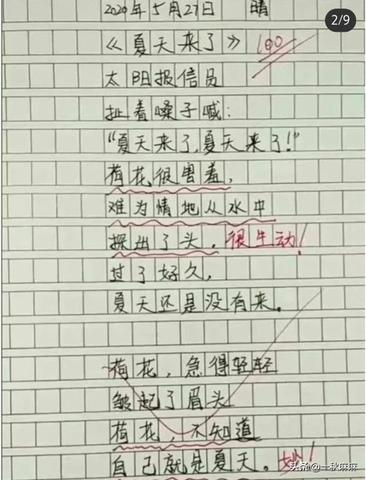 2/9
2020年5月27日 晴
《夏天来了》 100
太阳报信员
扯着嗓子喊:
“夏天来了,夏天来了!”
荷花很害羞,
难为情地从水中
探出了头。很生动!
过了好久,
夏天还是没有来。
荷花,急得轻轻
皱起了眉头
荷花,不知道
自己就是夏天。妙!
头条@一秋麻麻